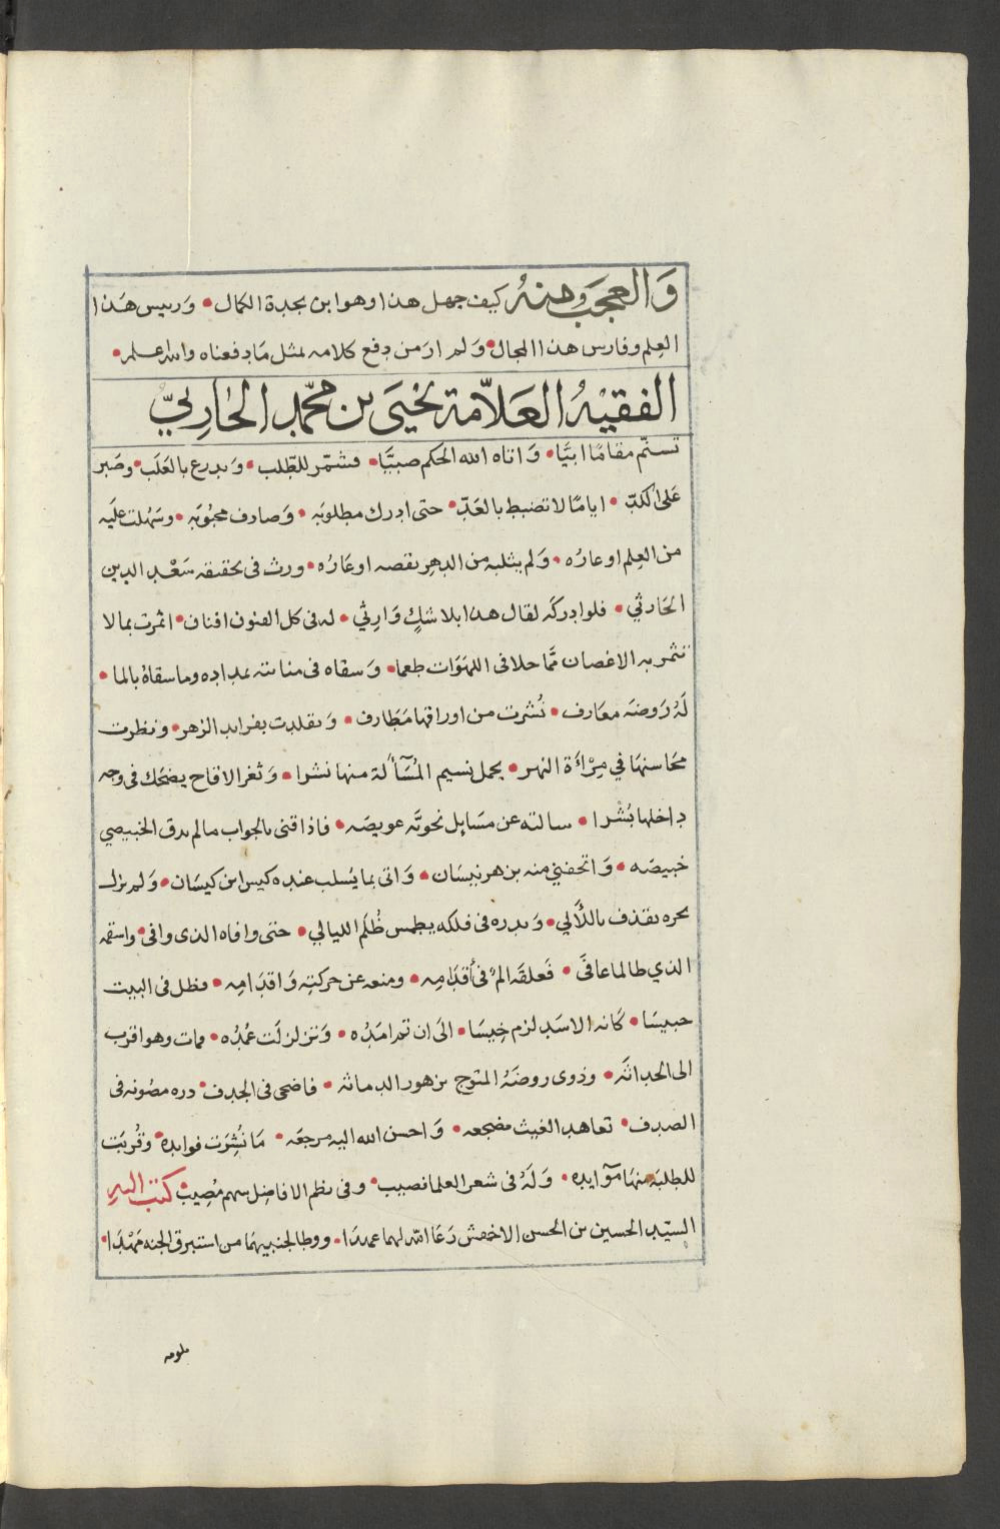 وَالعجَب منهُ كيف جهل هذا وهو ابن بجدة الكمال • وَرىيس هَذا
العِلم وفارس هذا المجال • وَلم ارَ من دفع كلامه بمثل مَا دفعناه والله علم •
الفقيْهُ العَلاّمة يَحْيَى بن محمّد الحَارِثيّ
تسنّم مقامًا ابيًّا • وَاتاه الله الحكم صبيًّا • فشمّر للطّلب • وَىدرع بالغلَب • وصَبر
عَلى الكدّ • ايامًا لا تضبط بالعَدّ • حتى ادرك مطلوبَه • وَصادف محبُوبَه • وسَهُلت عليَه
من العِلم اوعارُه • وَلم يثلبه من الدهر نقصه او عَارُه • ورث فى تحقىقه سَعْد الدين
الحَارثي • فلو ادركَه لقال هذا بلا شكٍ وَارِثي • له فى كل الفنون افنان • اثمرت بما لا
تثمر به الاغصان • ممَّا حلا فى اللهَوَات طعما • وَسقاه فى منابته بمداده وما سقاهُ بالما •
لَهُ رَوضَه معَارف • نُشرت من اوراقها مَطَارف • وَىقلدت بفرايد الزهر • ونظرت
محَاسنهَا في مِرْاءَة النهر • يحمل نسيم المُسَآلة منها نشرا • وَثغر الاقاح يضحَك فى وجه
داخلها بُشرا • سالته عن مسَايل نحويَّه عويصَه • فاذاقنى بالجواب ما لم يدق الخبيصي
خبيصَه • وَاتحفني منه بزهر نيسَان • وَاتى بما يُسلب عنده كيس ابن كيسَان • وَلم يزل
بحره ىقذف باللآلي • وَبدره فى فلكه يطمس ظُلَم الليالي • حتى وافاه الذى وافى • واسقمه
الذي طالما عافَى • فَعلقَه المٌ فى أقدَامِه • ومنعه عن حركتِه وَاقدَامِه • فظل فى البيت
حبيسَا • كَانه الاسَد لزم خِيسَا • الَى ان تم امَدُه • وَتزلزلَت عُمُدُه • فمات وهو اقرب
الى الحداثَه • وذوى روضَهُ المتوج بزهور الدماثه • فاضحى فى الجدف • دره مصُونه فى
الصدف • تعاهد الغيث مضجعه • وَاحسن الله اليه مرجعَه • مَا نُشِرَت فوايده • وقُربَت
للطلبَة منهَا موَآيده • وَلَهُ فى شعر العلما نصيب • وفى نظم الافاضِل سهم مُصِيب • كتب الىه
السيّد الحسين بن الحسن الاخفش رَعَا الله لهما عهدَا • ووطا لجنبيهمَا من استبرق الجنه مَهْدَا •